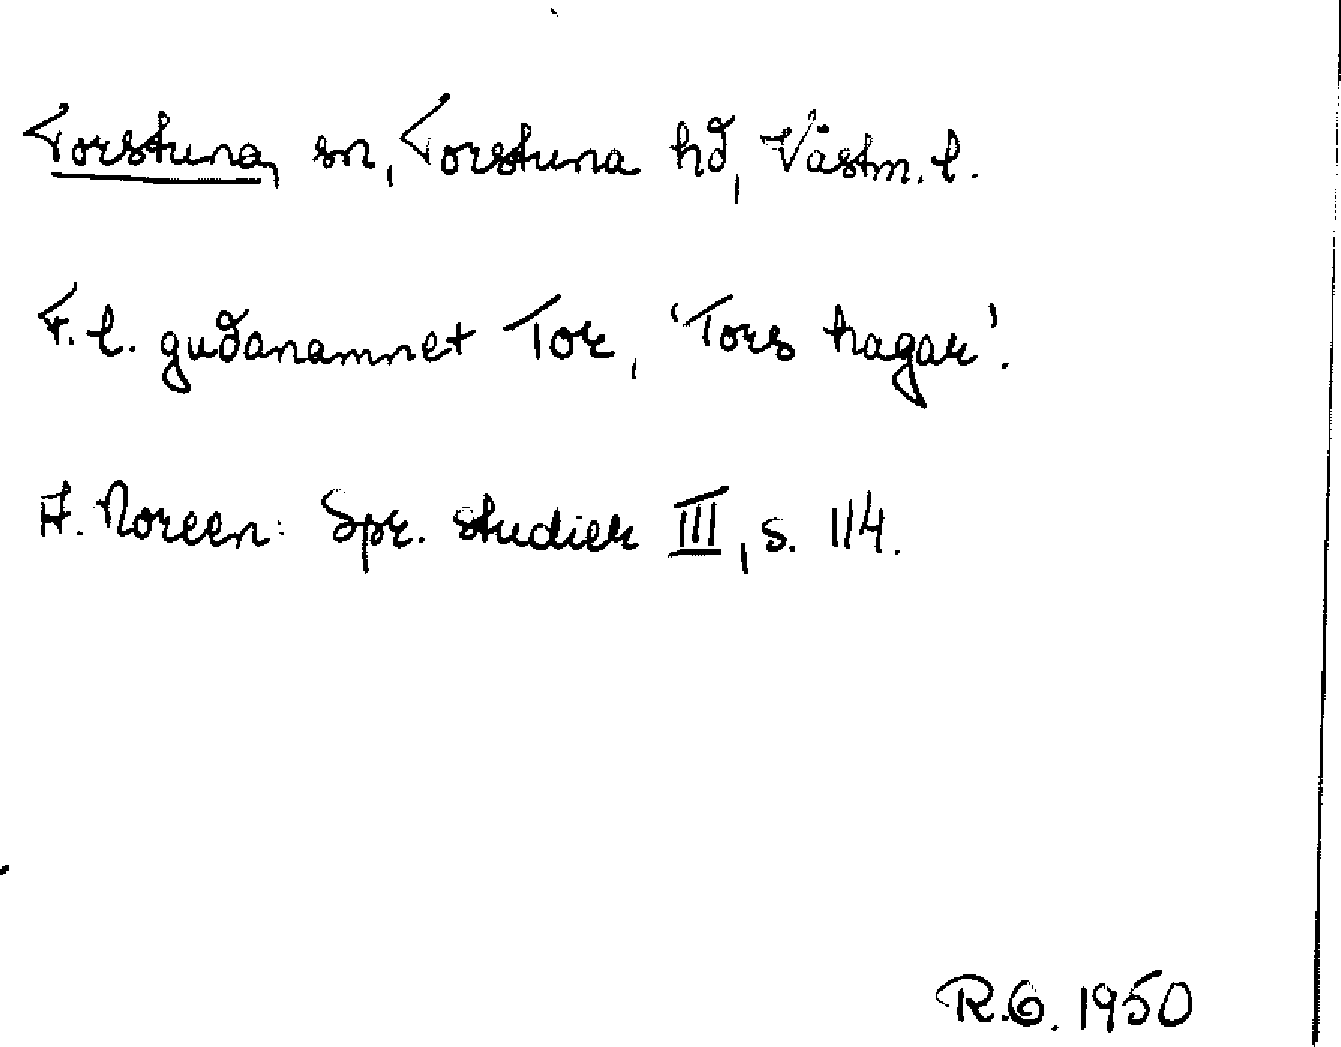 Torstuna, sn, Torstuna hd, Västm. l.
F. l. gudanamnet Tor, 'Tors hagar'.
A. Noreen: Spr. studier III, s. 114.
R.G. 1950